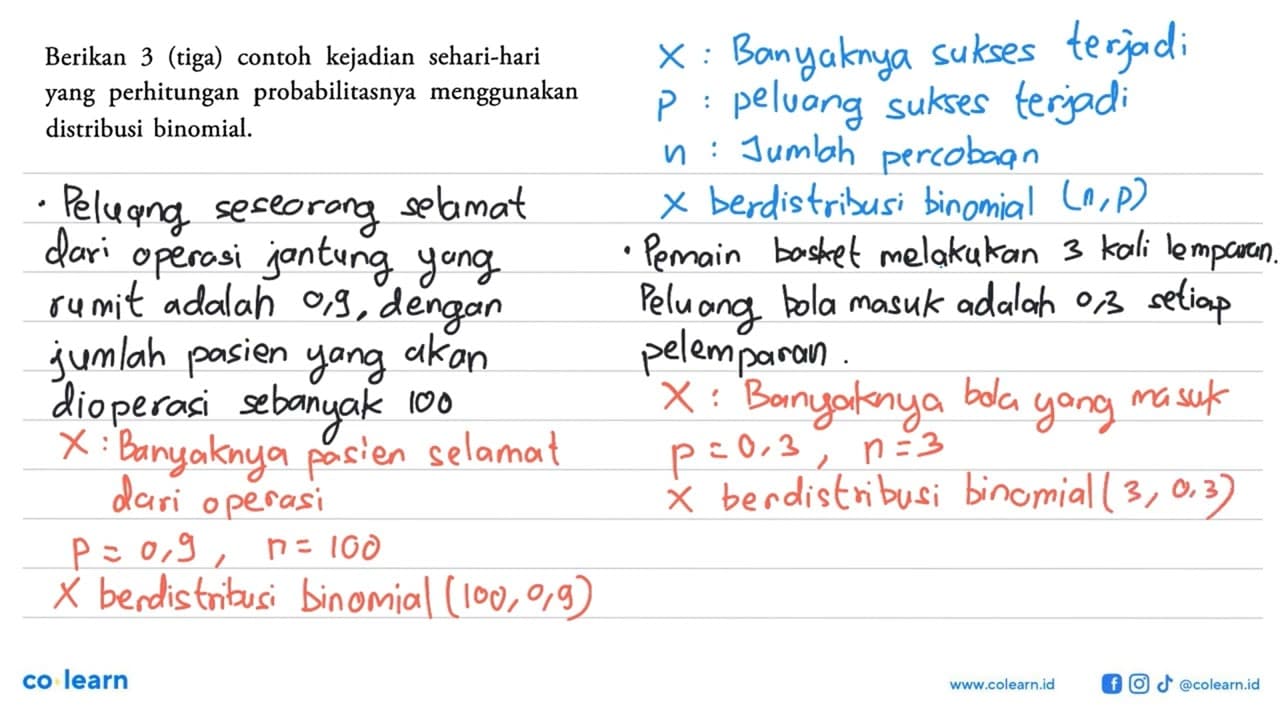 Berikan 3 (tiga) contoh kejadian sehari-hari
yang perhitungan probabilitasnya menggunakan
distribusi binomial.
X : Banyaknya sukses terjadi
P : peluang sukses terjadi
n : Jumlah percobaan
X berdistribusi binomial (n,p)
• Peluang seseorang selamat
dari operasi jantung yang
rumit adalah 0,9, dengan
jumlah pasien yang akan
dioperasi sebanyak 100
X : Banyaknya pasien selamat
dari operasi
P = 0,9, n = 100
X berdistribusi binomial (100, 0,9)
• Pemain basket melakukan 3 kali lemparan.
Peluang bola masuk adalah 0,3 setiap
pelemparan.
X : Banyaknya bola yang masuk
p = 0,3, n = 3
X berdistribusi binomial (3, 0,3)
co learn
www.colearn.id
@colearn.id